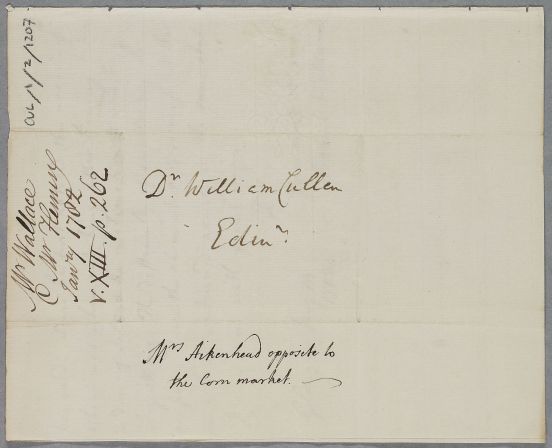 Dr. William Cullen
Edinr.
Mrs Aikenhead opposite to
the Corn market.
Mr Wallace
C Mr Fleming
Janry 1782
V. XIII. p. 262
CUL/1/2/1207